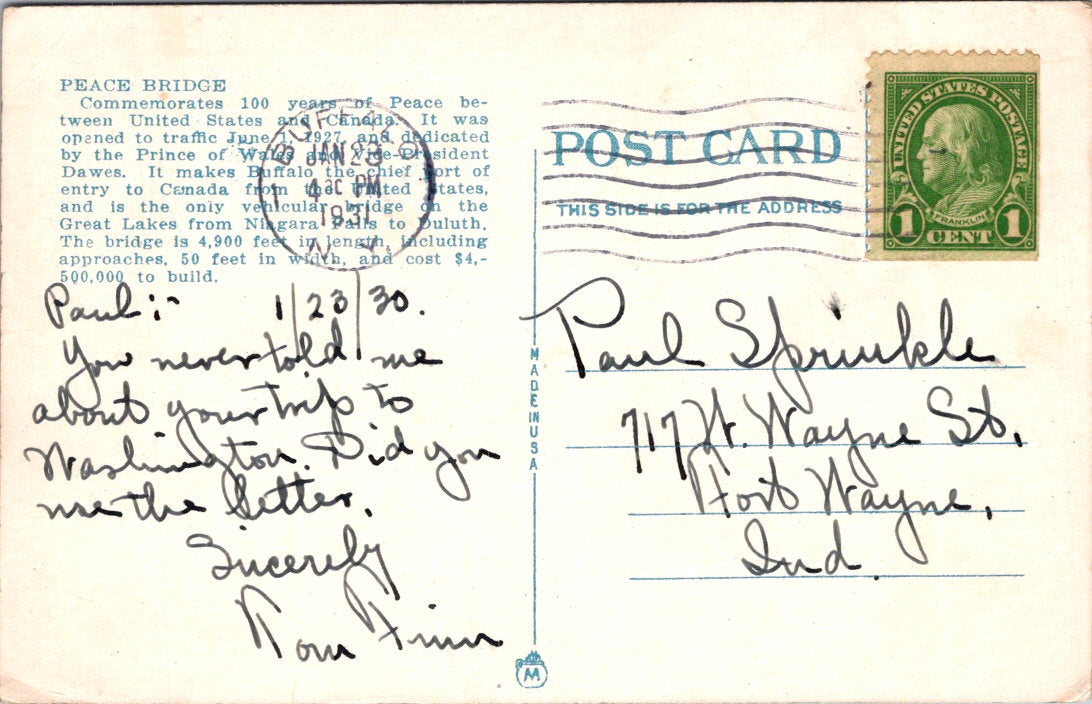 PEACE BRIDGE
Commemorates 100 years of Peace be-
tween United States and Canada. It was
opened to traffic June 1, 1927, and dedicated
by the Prince of Wales and Vice-President
Dawes. It makes Buffalo the chief port of
entry to Canada from the United States,
and is the only vehicular bridge on the
Great Lakes from Niagara Falls to Duluth.
The bridge is 4,900 feet in length, including
approaches, 50 feet in width, and cost $4,-
500,000 to build.
BUFFALO
JAN 23
4 30 PM
1931
N.Y.
1
Paul:- 1/23/30.
You never told me
about your trip to
Washington. Did you
use the letter.
Sincerely
Tom Finn
MADE IN USA
M
POST CARD
THIS SIDE IS FOR THE ADDRESS
UNITED STATES POSTAGE
FRANKLIN
1 CENT 1
Paul Sprinkle
717 W. Wayne St.
Fort Wayne,
Ind.